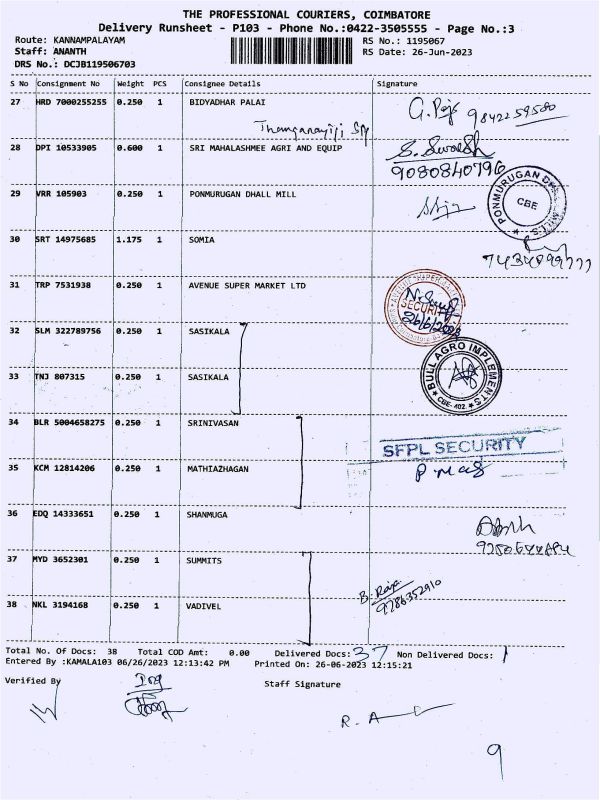 THE PROFESSIONAL COURIERS, COIMBATORE
Delivery Runsheet - P103 - Phone No.:0422-3505555 - Page No.:3
Route: KANNAMPALAYAM
Staff: ANANTH
DRS No.: DCJB119506703
RS No.: 1195067
RS Date: 26-Jun-2023
S No Consignment No Weight PCS Consignee Details Signature
27 HRD 7000255255 0.250 1 BIDYADHAR PALAI
9842259580
28 DPI 10533905 0.600 1 SRI MAHALASHMEE AGRI AND EQUIP
9080840796
29 VRR 105903 0.250 1 PONMURUGAN DHALL MILL
PONMURUGAN
CBE
30 SRT 14975685 1.175 1 SOMIA
31 TRP 7531938 0.250 1 AVENUE SUPER MARKET LTD
SECURITY
26/6/2023
32 SLM 322789756 0.250 1 SASIKALA
BULL AGRO IMPLEMENTS
CBE-402.
33 TNJ 807315 0.250 1 SASIKALA
34 BLR 5004658275 0.250 1 SRINIVASAN
SFPL SECURITY
35 KCM 12814206 0.250 1 MATHIAZHAGAN
36 EDQ 14333651 0.250 1 SHANMUGA
37 MYD 3652301 0.250 1 SUMMITS
B. Raja
9786352910
38 NKL 3194168 0.250 1 VADIVEL
Total No. Of Docs: 38 Total COD Amt: 0.00 Delivered Docs: 37 Non Delivered Docs: 1
Entered By :KAMALA103 06/26/2023 12:13:42 PM Printed On: 26-06-2023 12:15:21
Verified By
Staff Signature
R. A
9